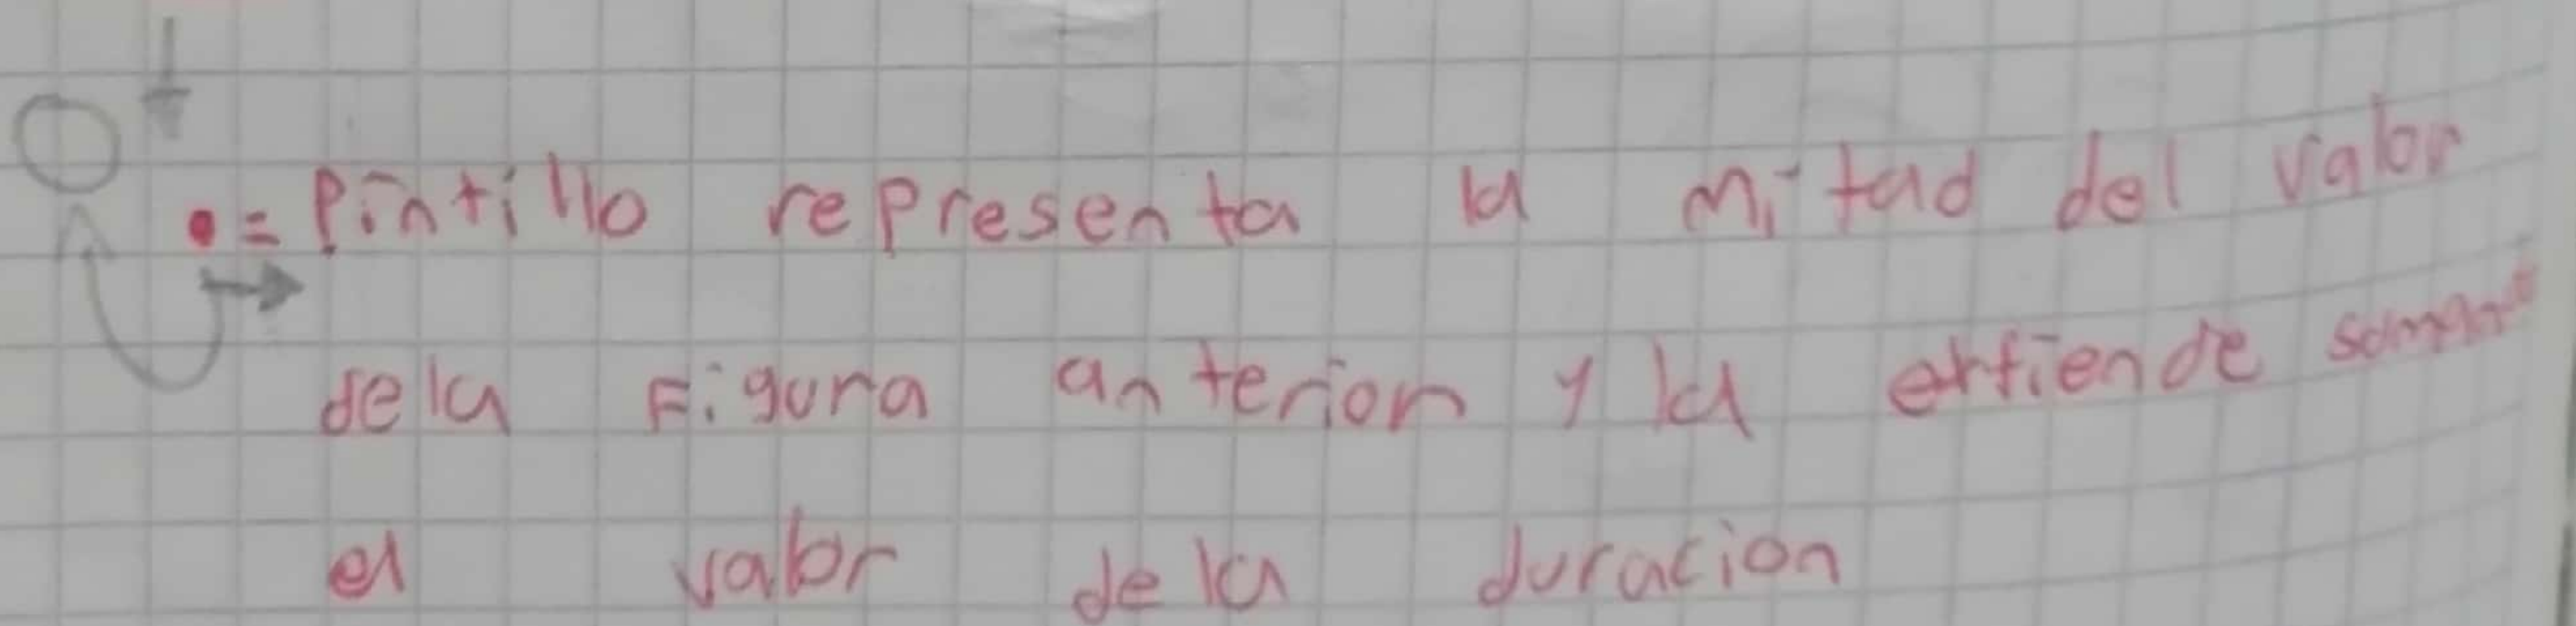 •= Pintillo representa la mitad del valor
dela Figura anterior y la extiende
el valor dela duracion